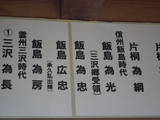 片桐為綱
信州飯島時代
飯島為光
(三沢郷受領)
飯島為忠
飯島広忠
(承久乱出陣)
飯島為房
雲州三沢時代
①三沢為長